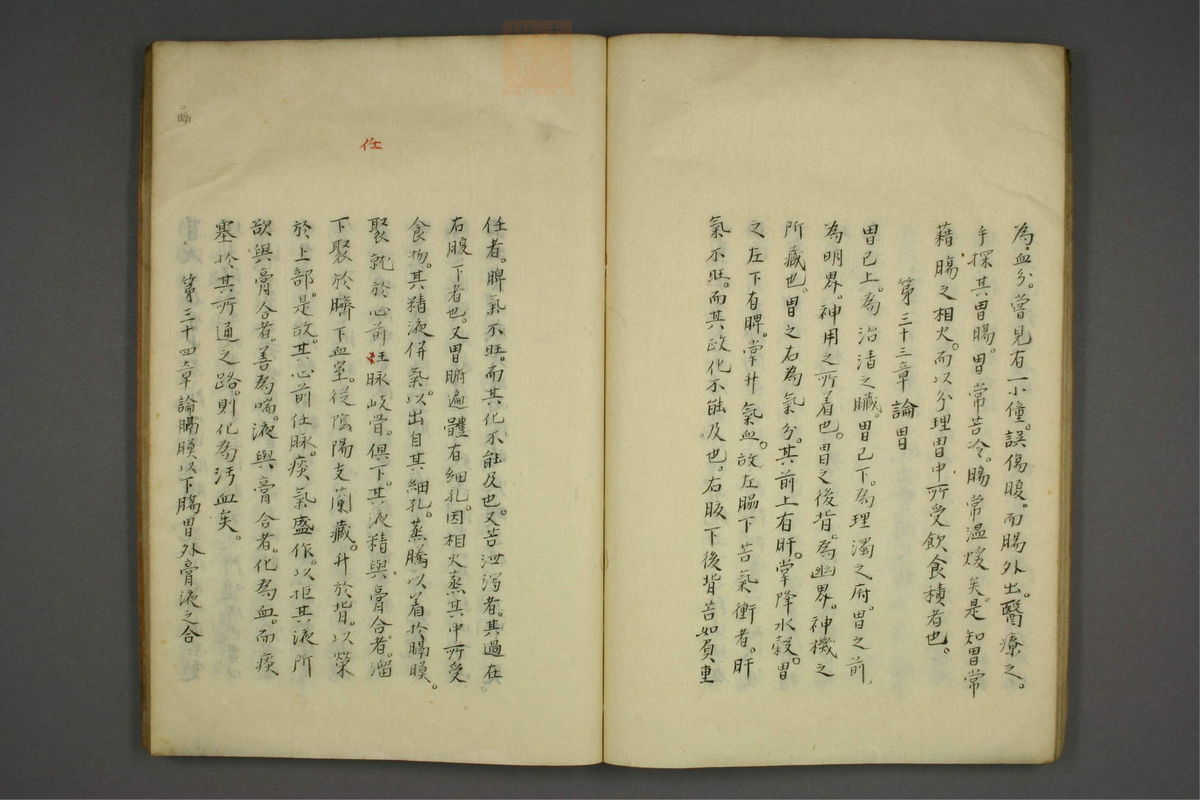 為血分。嘗見有一小僮。誤傷腹。而腸外出。醫療之。
手探其胃腸。胃常苦冷。腸常温煖矣。是知胃常
藉腸之相火。而以分理胃中所受飲食積者也。
第三十三章論胃
胃已上。為治清之臟。胃已下。為理濁之府。胃之前
為明界。神用之所着也。胃之後背。為幽界。神機之
所藏也。胃之右為氣分。其前上有肝。掌降水穀。胃
之左下有脾。掌升氣血。故左脇下苦氣衝者。肝
氣不旺。而其歐化不能及也。右胲下後背苦如負重
任者。脾氣不旺。而其化不能及也。又苦泄瀉者。其過在
右腹下者也。又胃腑遍體有細孔。因相火蒸其中所受
食物。其精液併氣。以出自其細孔。蒸騰以着於膈膜。
聚就於心前任脉岐骨。俱下。其液精與膏合者。溜
下聚於臍下血室。從陰陽支蘭藏。升於背。以榮
於上部。是故。其心前任脉。痰氣盛作。以拒其液所
欲與膏合者。善為喘。液與膏合者。化為血。而痰
塞於其所通之路。則化為汚血矣。
第三十四章論膈膜以下腸胃外膏液之合
任